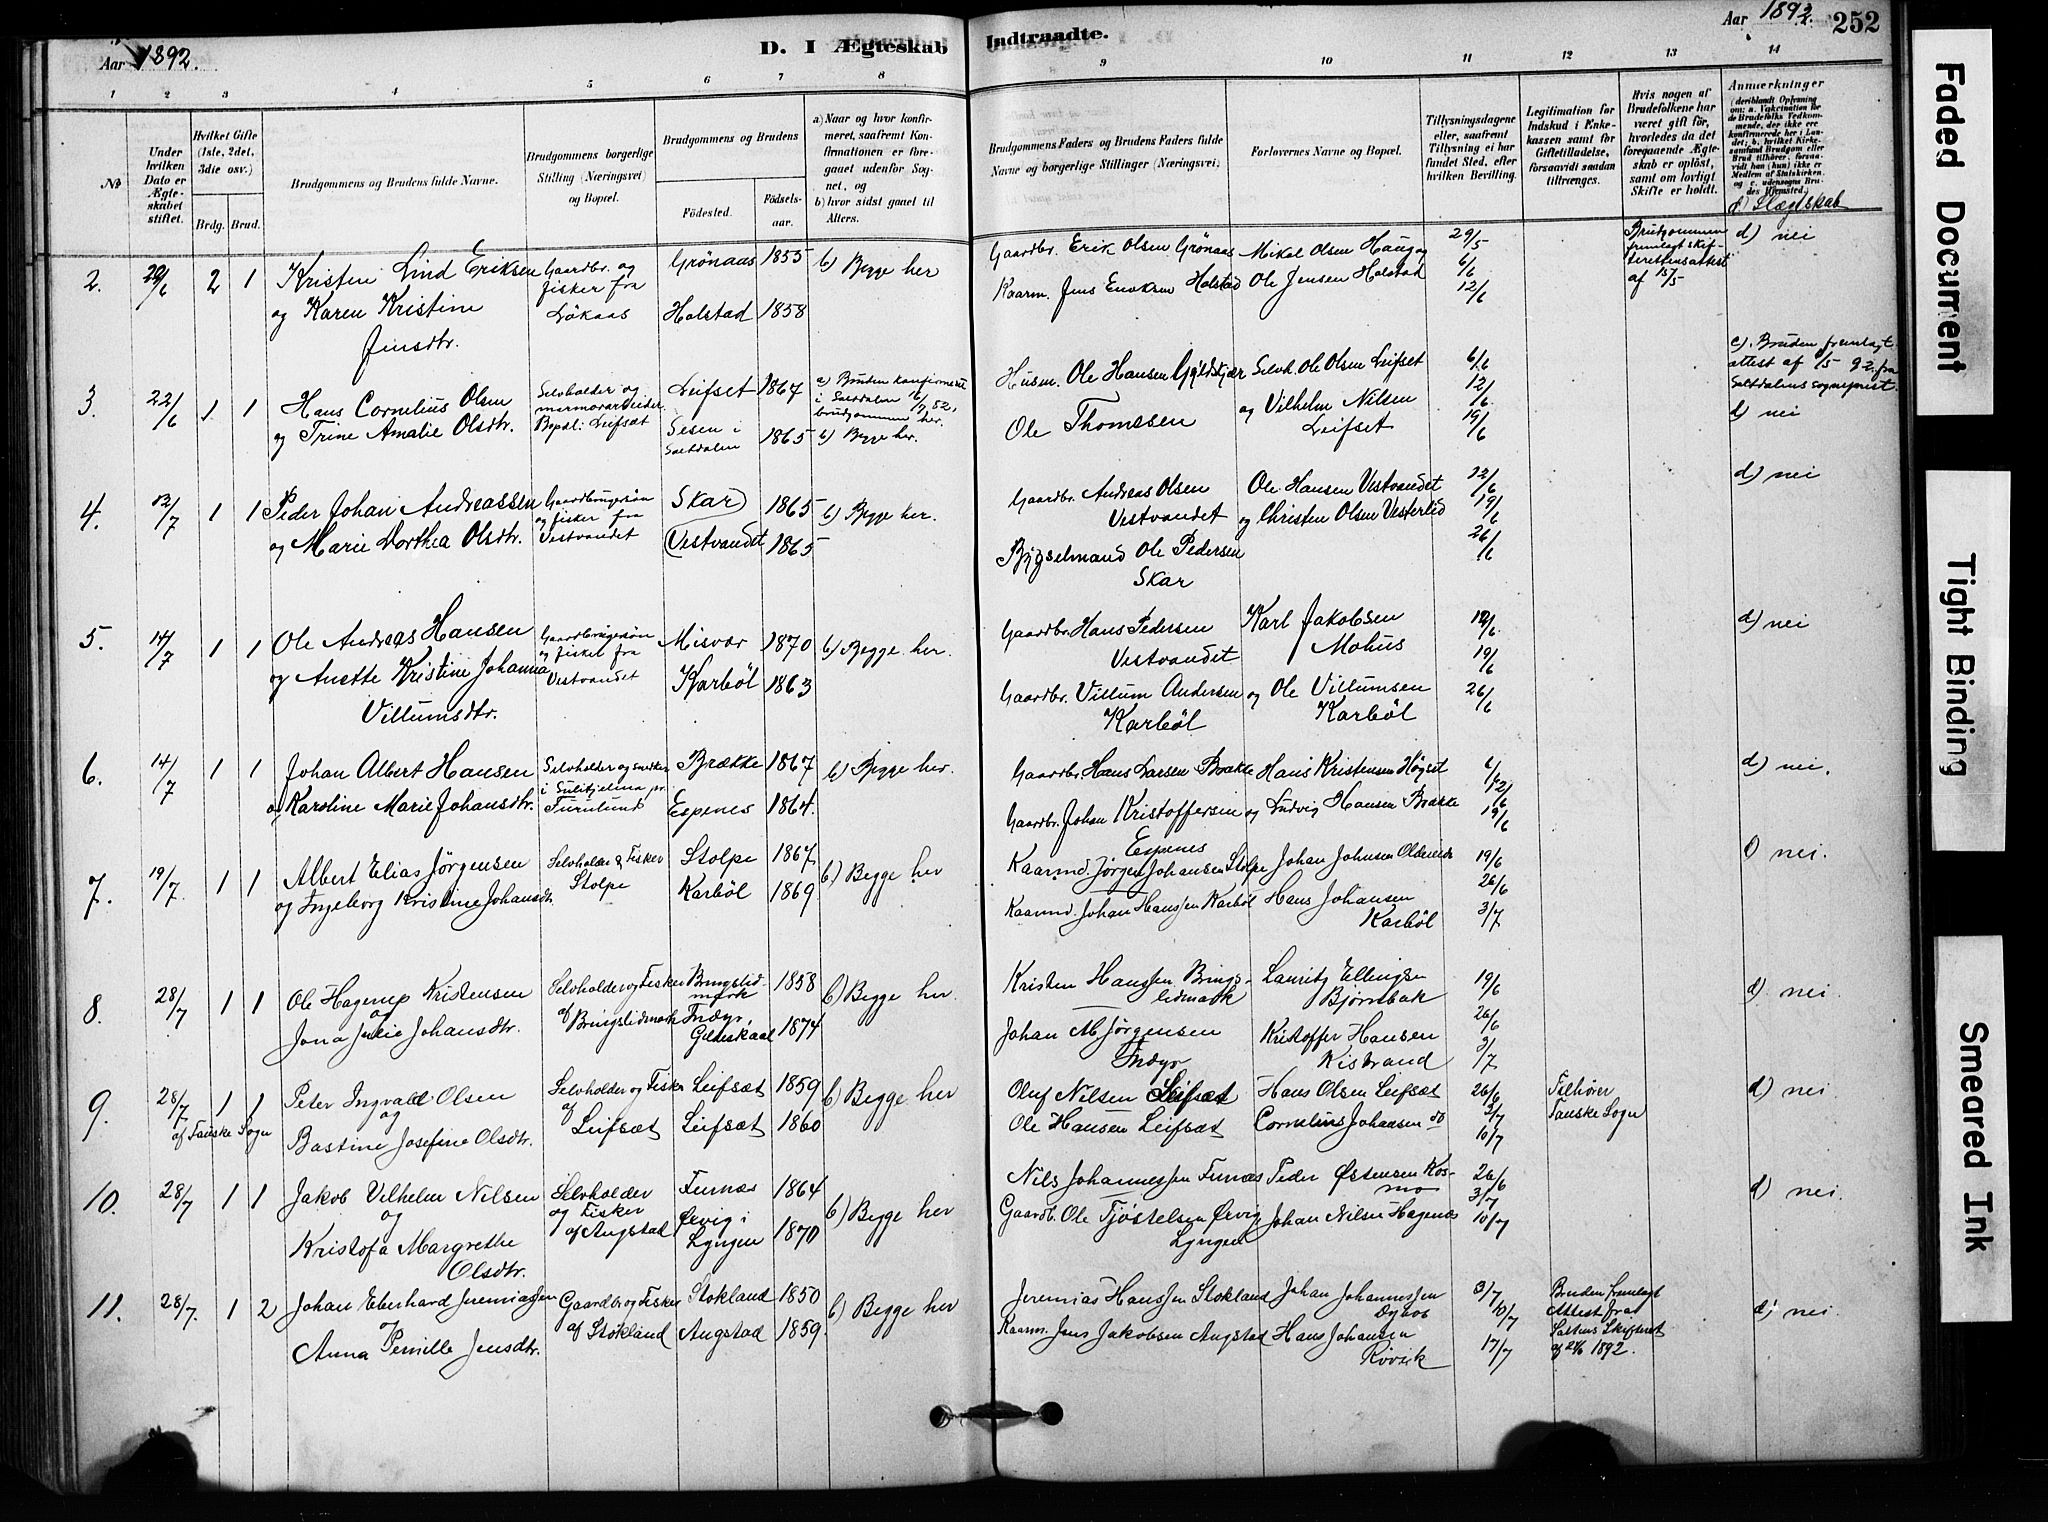 Aar 1892.
D. I Ægteskab Indtraadte.
Aar 1892.
252
1 2 3 4 5 6 7 8 9 10 11 12 13 14
No
Under hvilken Dato er Ægteskabet stiftet.
Hvilket Gifte (1ste, 2det, 3die osv.)
Brdg. Brud.
Brudgommens og Brudens fulde Navne.
Brudgommens borgerlige Stilling (Næringsvei) og Bopæl.
Brudgommens og Brudens
Fødested. Fødselsaar.
a) Naar og hvor konfirmeret, saafremt Konfirmationen er foregaaet udenfor Sognet, og
b) hvor sidst gaaet til Alters.
Brudgommens Faders og Brudens Faders fulde Navne og borgerlige Stillinger (Næringsvei)
Forlovernes Navne og Bopæl.
Tillysningsdagene eller, saafremt Tillysning ei har fundet Sted, efter hvilken Bevilling.
Legitimation for Indskud i Enkekassen samt for Giftetilladelse, forsaavidt saadan tiltrænges.
Hvis nogen af Brudefolkene har været gift før, hvorledes da det foregaaende Ægteskab er opløst, samt om lovligt Skifte er holdt.
Anmærkninger
d) Slægtskab
2. 2 1 Kristen Lind Eriksen Gaardbr. og Grönaas 1855 b) Begge her Gaardbr. Erik Olsen Grönaas Mikal Olsen Haug og 29/5 d) nei
fisker fra Ole Jensen Holstad 6/6
og Karen Kristine Lökaas Holstad 1858 12/6 af 15/5
Jensdtr.
3. 22/6 1 1 Hans Cornelius Olsen Selvholder og Leifset 1867 a) Bruden konfirmeret Husm. Ole Hansen Selvh. Ole Olsen Leifset 6/6 c). Bruden fremlagt
og Trine Amalie Olsdtr. Bopæl: Leifsæt Sesen i Saltdalen 1865 b) Begge her. Ole Thomssen og Vilhelm Nilsen Leifset 12/6 19/6 d) nei
4. 1 1 Peder Johan Andreassen Gaardbrugersön Skar 1865 b) Begge her. Gaardbr. Andreas Olsen Ole Hansen Vestvandet 12/6 d) nei
og fisker fra Vestvandet og Christen Olsen Vesterlid 19/6
og Marie Dorthea Olsdtr. Vestvandet Vestvandet 1865 Bygselmand Ole Pedersen 26/6
Skar
5. 14/7 1 1 Ole Andreas Hansen Gaardbrugersön Misvær 1870 b) Begge her. Gaardbr. Hans Pedersen Karl Jakobsen 12/6. d) nei
og fisker fra Vestvandet Mohus 19/6
og Anette Kristine Johanna Vestvandet Karböl 1863 Gaardbr. Villum Andersen og Ole Villumsen 26/6
Villumsdtr. Karböl Karböl
6. 14/7 1 1 Johan Albert Hansen Selvholder og snedker Brække 1867 b) Begge her. Gaardbr. Hans Larsen Brække Hans Kristensen Högset 6/6 d) nei.
i Sulitjelma pr. 12/6
og Karoline Marie Johansdtr. Furulund Espenes 1864. Gaardbr. Johan Kristoffersen og Ludvig Hansen Brække 19/6
Espenes
7. 19/7 1 1 Albert Elias Jørgensen Selvholder & Fisker Stolpe 1867 b) Begge her Kaarmd. Jørgen Johansen Stolpe Johan Johnsen 19/6 nei.
Stolpe 26/6
og Ingeborg Kristine Johansdtr. Karbøl 1869 Kaarmd. Johan Hanssen Karbøl Hans Johansen 3/7
Karbøl
8. 28/7 1 1 Ole Hagerup Kristensen Selvholder og Fisker Bringslidmark 1858 b) Begge her. Kristen Hanssen Bringslidmark Lauritz Ellingsen 19/6 d) nei
og af Bringslidmark Bjørnbak
Jona Julie Johansdtr. Indyr, Gildeskaal 1874 Johan M Jørgensen Kristoffer Hansen 26/6
Indyr Kistrand 3/7
9. 28/7 1 1 Peter Ingvald Olsen Selvholder og Fisker Leifsæt 1859 b) Begge her Oluf Nilsen Leifsæt Hans Olsen Leifsæt 26/6 Tilhører d) nei
og af 3/7 Fauske Sogn
af Fauske Sogn Bastine Josefine Olsdtr. Leifsæt Leifsæt 1860 Ole Hansen Leifsæt Cornelius Johansen do 10/7
10. 28/7 1 1 Jakob Vilhelm Nilsen Selvholder Furnæs 1864 b) Begge her Nils Johannessen Furnæs Peder Østensen Kosmo 26/6 d) nei.
og og Fisker 3/7
Kristofa Margrethe af Angstad Ørvig i Lyngen 1870 Gaardb. Ole Tjøstelsen Ørvig Johan Nilsen Hagenæs 10/7
Olsdtr. Lyngen
11. 28/7. 1 2 Johan Eberhard Jeremiassen Gaardbr og Fisker Stokland 1850 b) Begge her Jeremias Hanssen Stokland Johan Johannessen 3/7 Bruden fremlagt d) nei
og af Stokland 10/7 Attest fra
Anna Pernille Jensdtr. Angstad 1859. Kaarm. Jens Jakobsen Angstad Hans Johansen 17/7 Saltens Skifteret
Røvik 1892.
Faded Document
Tight Binding
Smeared Ink